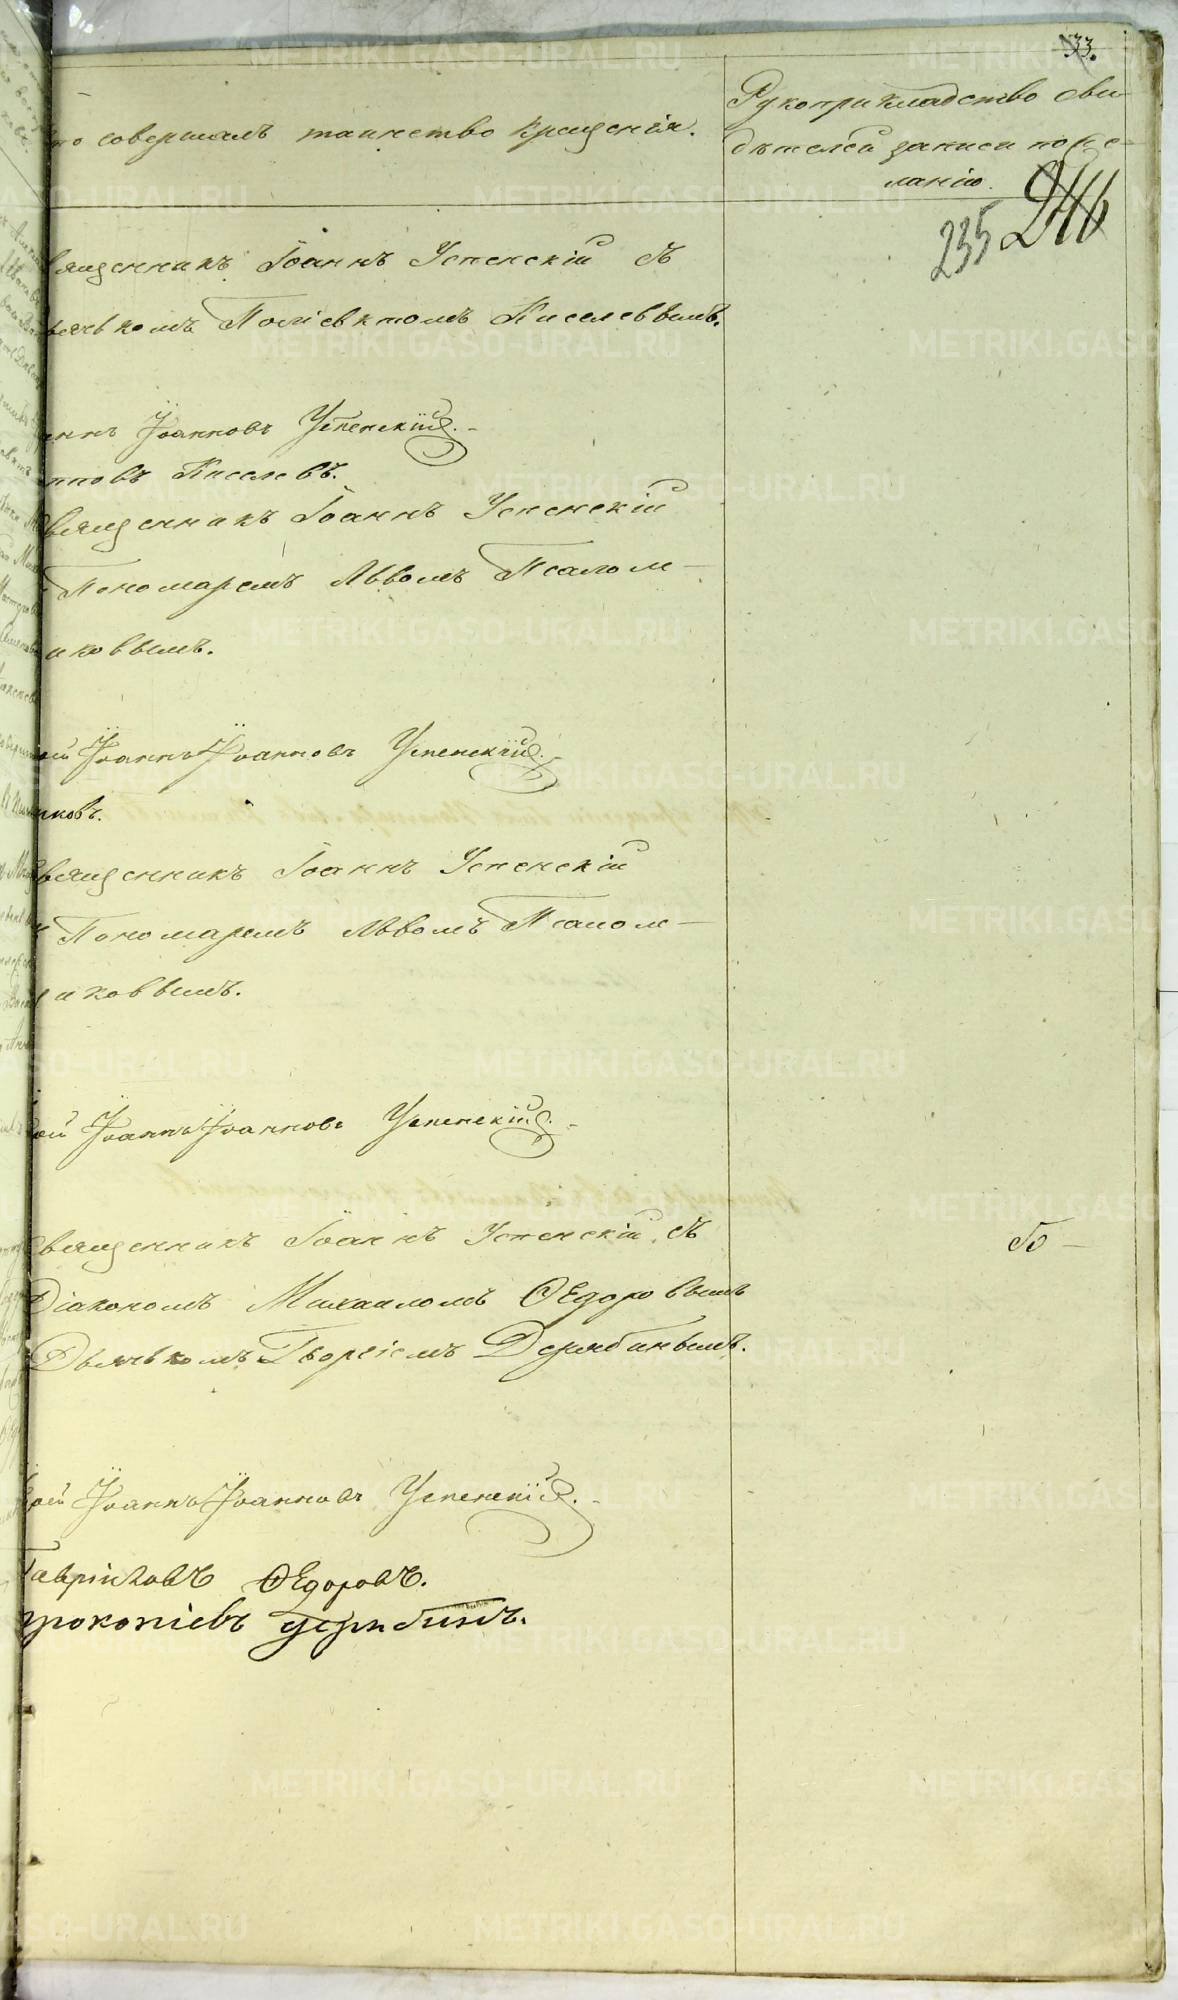 33.
то совершалъ таинство крещенія.
Рукоприкладство сви-
дѣтелей записи по же-
ланію.
235 246
вященникъ Іоаннъ Успенскій съ
ячькомъ Поліевктомъ Киселевымъ.
аннъ Іоанновъ Успенскій.
нновъ Киселевъ.
вященникъ Іоаннъ Успенскій
Пономаремъ Львомъ Псалом-
иковымъ.
ей Іоаннъ Іоанновъ Успенскій.
иковъ.
вященникъ Іоаннъ Успенскій
Пономаремъ Львомъ Псалом-
иковымъ.
ей Іоаннъ Іоанновъ Успенскій.
Священникъ Іоаннъ Успенскій, съ
Діакономъ Михаиломъ Ѳедоровымъ
Дьячькомъ Георгіемъ Дерябинымъ.
ей Іоаннъ Іоанновъ Успенскій.
Гавріиловъ Ѳедоровъ.
Прокопіевъ Дерябинъ.
METRIKI.GASO-URAL.RU